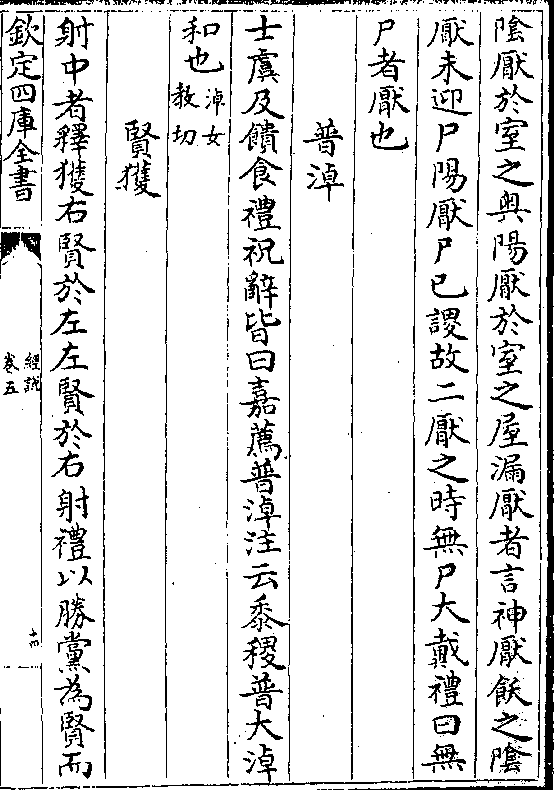 陰厭於室之奥陽厭於室之屋漏厭者言神厭飫之陰
厭未迎尸陽厭尸已謖故二厭之時無尸大戴禮曰無
尸者厭也
普淖
士虞及饋食禮祝辭皆曰嘉薦普淖注云黍稷普大淖
和也淖女教切
賢獲
射中者釋獲右賢於左左賢於右射禮以勝黨為賢而
欽定四庫全書
經說
卷五
十四